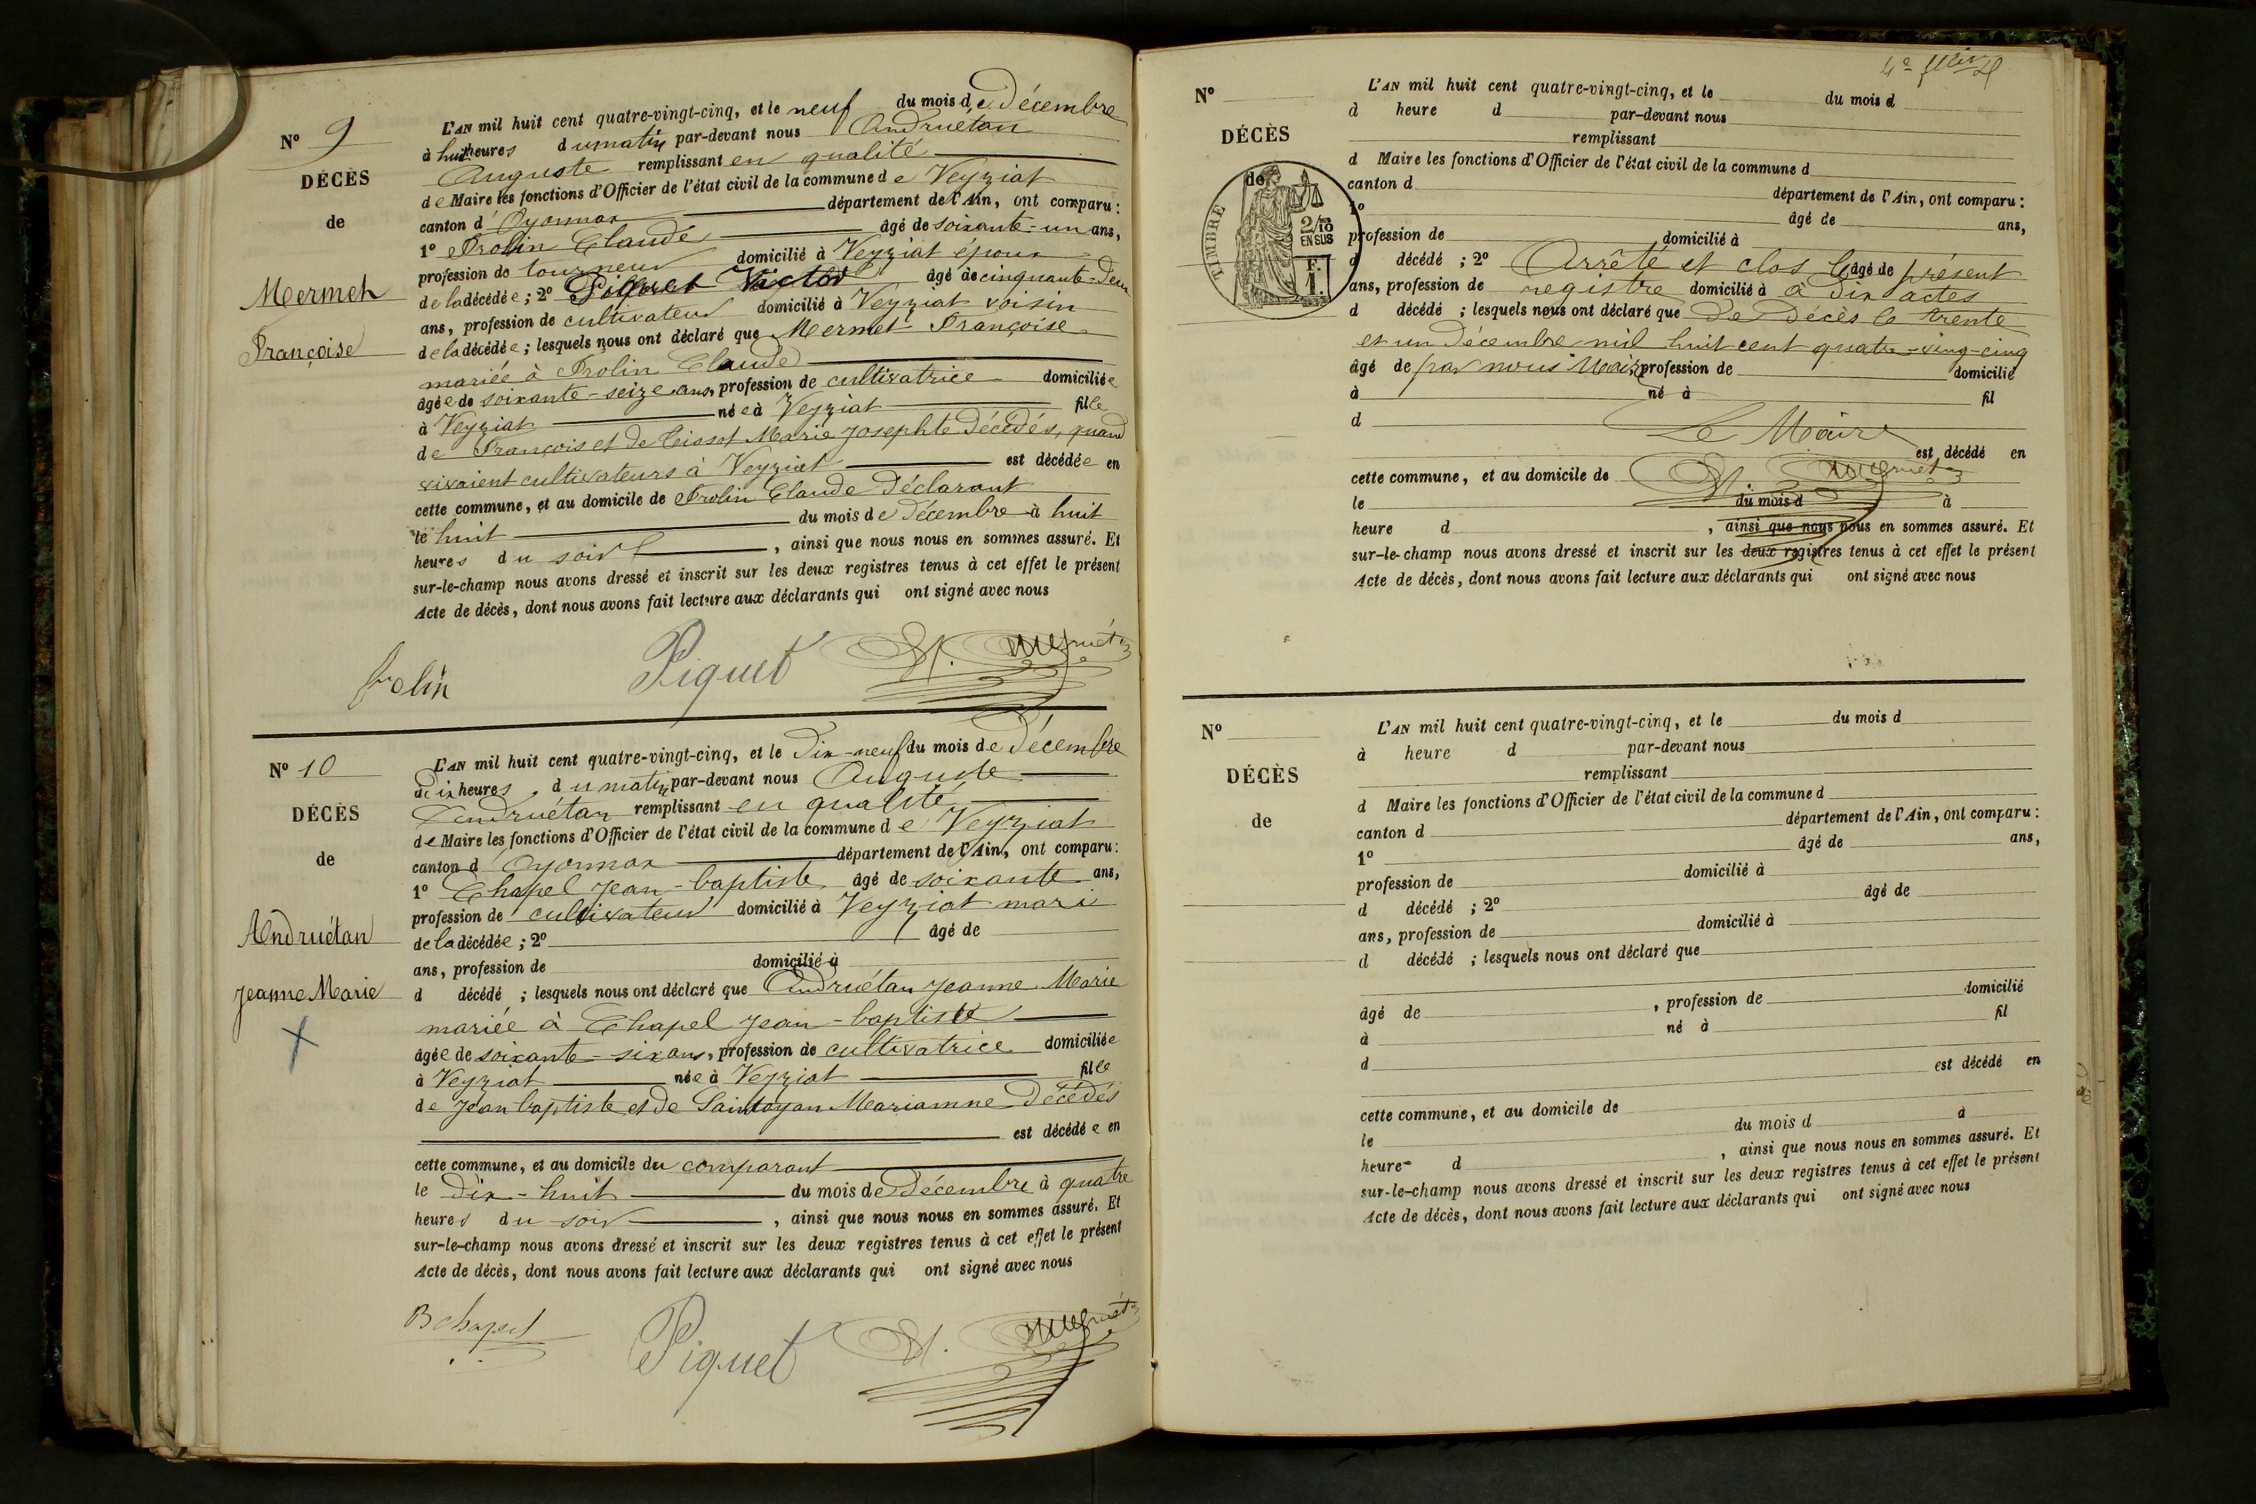 N° 9
DÉCÈS
de
Mermet
Françoise
L'AN mil huit cent quatre-vingt-cinq, et le neuf du mois de Décembre
à huit heures du matin par-devant nous Andruétan
Auguste remplissant en qualité
de Maire les fonctions d'Officier de l'état civil de la commune de Veyziat
canton d'Oyonnax département de l'Ain, ont comparu :
1° Prolin Claude âgé de soixante-un ans,
profession de tourneur domicilié à Veyziat époux
de la décédée ; 2° Piquet Victor âgé de cinquante-deux
ans, profession de cultivateur domicilié à Veyziat voisin
de la décédée ; lesquels nous ont déclaré que Mermet Françoise
mariée à Prolin Claude
âgée de soixante-seize ans, profession de cultivatrice domiciliée
à Veyziat née à Veyziat fille
de François et de Marie Josephte décédés, quand
vivaient cultivateurs à Veyziat est décédée en
cette commune, et au domicile de Prolin Claude déclarant
le huit du mois de Décembre à huit
heures du soir, ainsi que nous nous en sommes assuré. Et
sur-le-champ nous avons dressé et inscrit sur les deux registres tenus à cet effet le présent
Acte de décès, dont nous avons fait lecture aux déclarants qui ont signé avec nous
Prolin Piquet A. Andruétan
N° 10
DÉCÈS
de
Andruétan
Jeanne Marie
L'AN mil huit cent quatre-vingt-cinq, et le Dix-neuf du mois de Décembre
à dix heures du matin par-devant nous Auguste
Andruétan remplissant en qualité
de Maire les fonctions d'Officier de l'état civil de la commune de Veyziat
canton d'Oyonnax département de l'Ain, ont comparu :
1° Chapel Jean-baptiste âgé de soixante ans,
profession de cultivateur domicilié à Veyziat mari
de la décédée ; 2° âgé de
ans, profession de domicilié à
d décédé ; lesquels nous ont déclaré que Andruétan Jeanne Marie
mariée à Chapel Jean-baptiste
âgée de soixante-six ans, profession de cultivatrice domiciliée
à Veyziat née à Veyziat fille
de Jean baptiste et de Saintoyan Marianne Décédés
est décédée en
cette commune, et au domicile du comparant
le Dix-huit du mois de Décembre à quatre
heures du soir, ainsi que nous nous en sommes assuré. Et
sur-le-champ nous avons dressé et inscrit sur les deux registres tenus à cet effet le présent
Acte de décès, dont nous avons fait lecture aux déclarants qui ont signé avec nous
B chapel Piquet A. Andruétan
N°
DÉCÈS
de
TIMBRE
2/10
EN SUS
L'AN mil huit cent quatre-vingt-cinq, et le du mois d
à heure d par-devant nous
remplissant
d Maire les fonctions d'Officier de l'état civil de la commune d
canton d département de l'Ain, ont comparu :
1° âgé de ans,
profession de domicilié à
d décédé ; 2° Arrêté et clos le âgé de présent
ans, profession de registre domicilié à à dix actes
d décédé ; lesquels nous ont déclaré que De Décès le trente
et un Décembre mil huit cent quatre-ving-cinq
âgé de par nous Maire, profession de domicilié
à né à fil
d Le Maire
est décédé en
cette commune, et au domicile de A. Andruétan
le du mois d à
heure d , ainsi que nous nous en sommes assuré. Et
sur-le-champ nous avons dressé et inscrit sur les deux registres tenus à cet effet le présent
Acte de décès, dont nous avons fait lecture aux déclarants qui ont signé avec nous
N°
DÉCÈS
de
L'AN mil huit cent quatre-vingt-cinq, et le du mois d
à heure d par-devant nous
remplissant
d Maire les fonctions d'Officier de l'état civil de la commune d
canton d département de l'Ain, ont comparu :
1° âgé de ans,
profession de domicilié à
d décédé ; 2° âgé de
ans, profession de domicilié à
d décédé ; lesquels nous ont déclaré que
âgé de , profession de domicilié
à né à fil
d
est décédé en
cette commune, et au domicile de
le du mois d à
heure d , ainsi que nous nous en sommes assuré. Et
sur-le-champ nous avons dressé et inscrit sur les deux registres tenus à cet effet le présent
Acte de décès, dont nous avons fait lecture aux déclarants qui ont signé avec nous